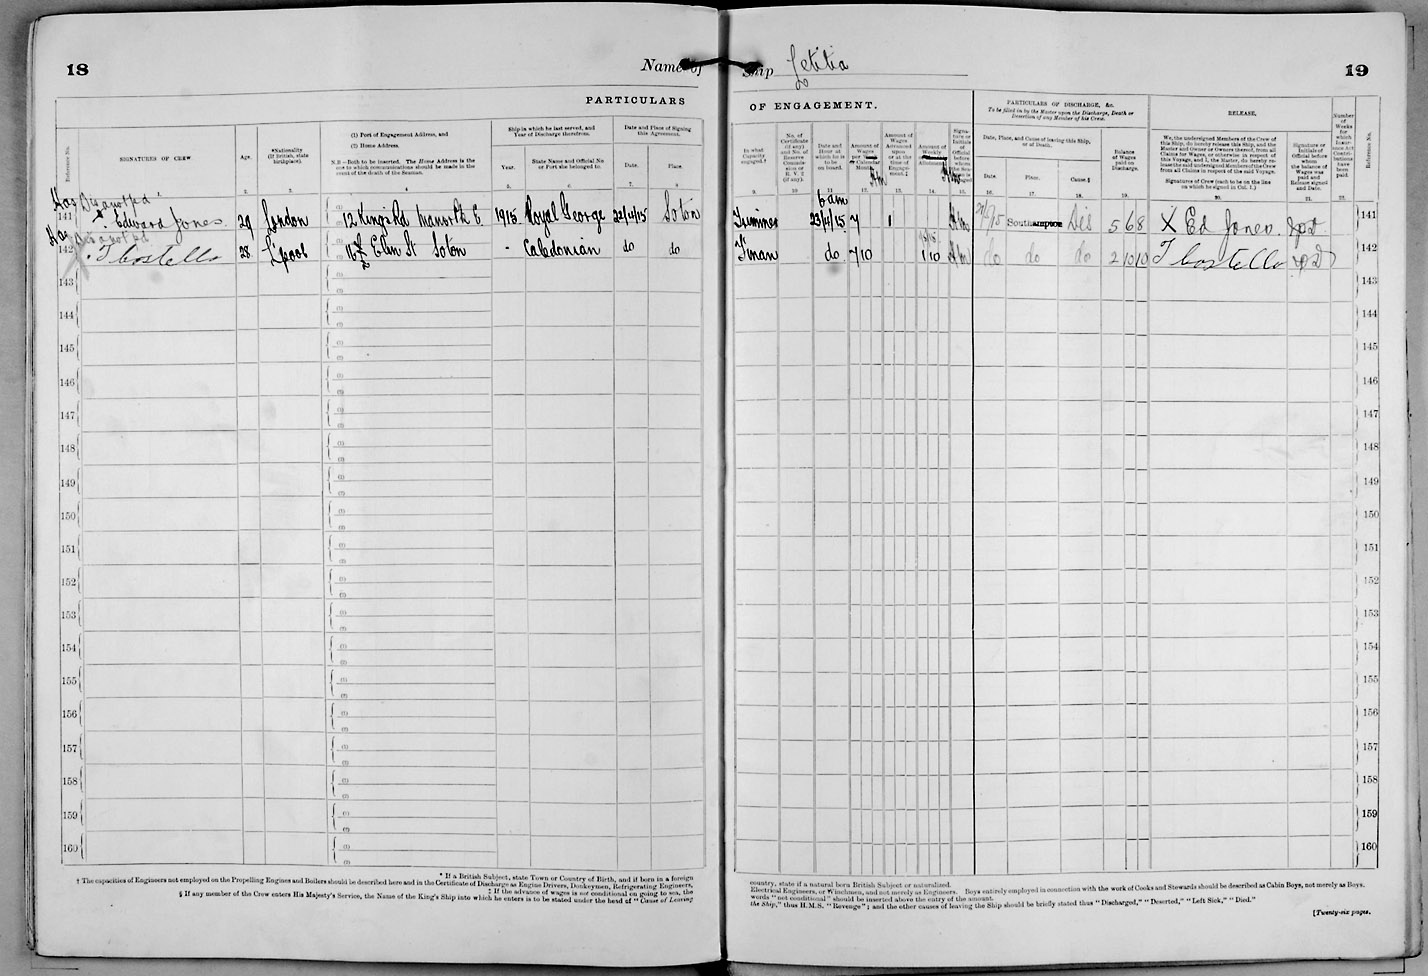 18
Name of Ship Letitia
19
PARTICULARS OF ENGAGEMENT.
PARTICULARS OF DISCHARGE, &c.
To be filled in by the Master upon the Discharge, Death or Desertion of any Member of his Crew.
RELEASE.
Reference No.
SIGNATURES OF CREW
Age.
*Nationality (If British, state birthplace).
(1) Port of Engagement Address, and
(2) Home Address.
N.B.—Both to be inserted. The Home Address is the one to which communications should be made in the event of the death of the Seaman.
Ship in which he last served, and Year of Discharge therefrom.
Year.
State Name and Official No. or Port she belonged to.
Date and Place of Signing this Agreement.
Date.
Place.
In what Capacity engaged.†
No. of Certificate (if any) and No. of Reserve Commission or R.V.2 (if any).
Date and Hour at which he is to be on board.
Amount of Wages per Week or Calendar Month.
Amount of Wages Advanced upon or at the time of Engagement.‡
Amount of Weekly or Monthly Allotment.
Date, Place, and Cause of leaving this Ship, or of Death.
Date.
Place.
Cause.§
Balance of Wages paid on Discharge.
We, the undersigned Members of the Crew of this Ship, do hereby release this Ship, and the Master and Owner or Owners thereof, from all Claims for Wages, or otherwise in respect of this Voyage, and I, the Master, do hereby release the said undersigned Members of the Crew from all Claims in respect of the said Voyage.
Signatures of Crew (each to be on the line on which he signed in Col. 1.)
Signature or Initials of Official before whom the balance of Wages was paid and Release signed and Date.
Number of Weeks for which Insurance Act Contributions have been paid.
Reference No.
1. 2. 3. 4 5. 6. 7. 8 9. 10 11. 12. 13. 14. 15. 16. 17. 18. 19. 20. 21. 22.
6 am
141 Edward Jones 29 London 12 Kings Rd 1915 Royal George 22/4/15 Soton Trimmer 23/4/15 7 1 Southampton Dis 5 6 8 X Ed Jones 141
142 T Costello 28 L'pool Soton - Caledonian do do F'man do 7 10 1 10 do do do 2 10 10 T Costello 142
143 143
144 144
145 145
146 146
147 147
148 148
149 149
150 150
151 151
152 152
153 153
154 154
155 155
156 156
157 157
158 158
159 159
160 160
* If a British Subject, state Town or Country of Birth, and if born in a foreign country, state if a natural born British Subject or naturalized.
† The capacities of Engineers not employed on the Propelling Engines and Boilers should be described here and in the Certificate of Discharge as Engine Drivers, Donkeymen, Refrigerating Engineers, Electrical Engineers, or Winchmen, and not merely as Engineers. Boys entirely employed in connection with the work of Cooks and Stewards should be described as Cabin Boys, not merely as Boys.
‡ If the advance of wages is not conditional on going to sea, the words "not conditional" should be inserted above the entry of the amount.
§ If any member of the Crew enters His Majesty's Service, the Name of the King's Ship into which he enters is to be stated under the head of "Cause of Leaving the Ship," thus H.M.S. "Revenge"; and the other causes of leaving the Ship should be briefly stated thus "Discharged," "Deserted," "Left Sick," "Died."
[Twenty-six pages.